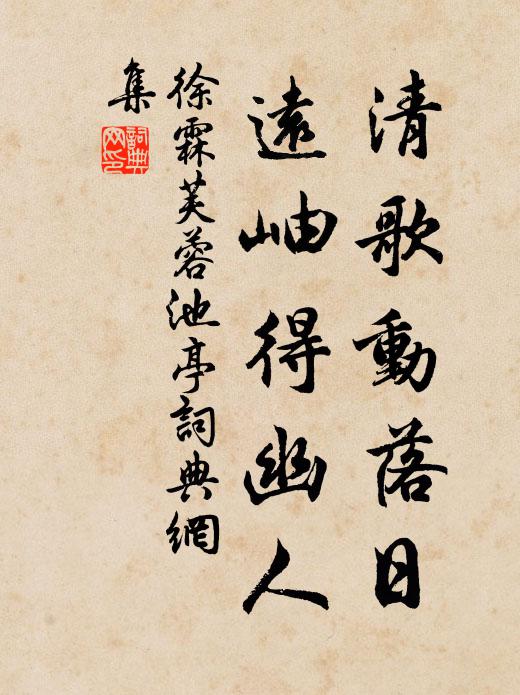 清歌動落日
遠岫得幽人
徐霖芙蓉池亭詞典網
集
詞典
网印